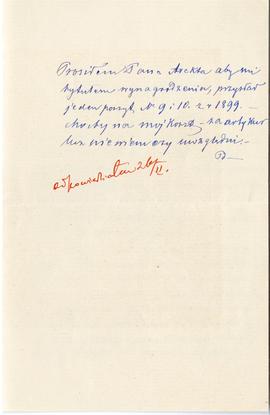 Prosiłem Pana Arekta aby mi
tytułem wynagrodzenia, przysłał
jeden poszyt N 9 i 10. z r 1899. —
choćby na mój koszt — za artykuł
lecz nie wiem czy uwzględni. —
odpowiedziałem 26/II.